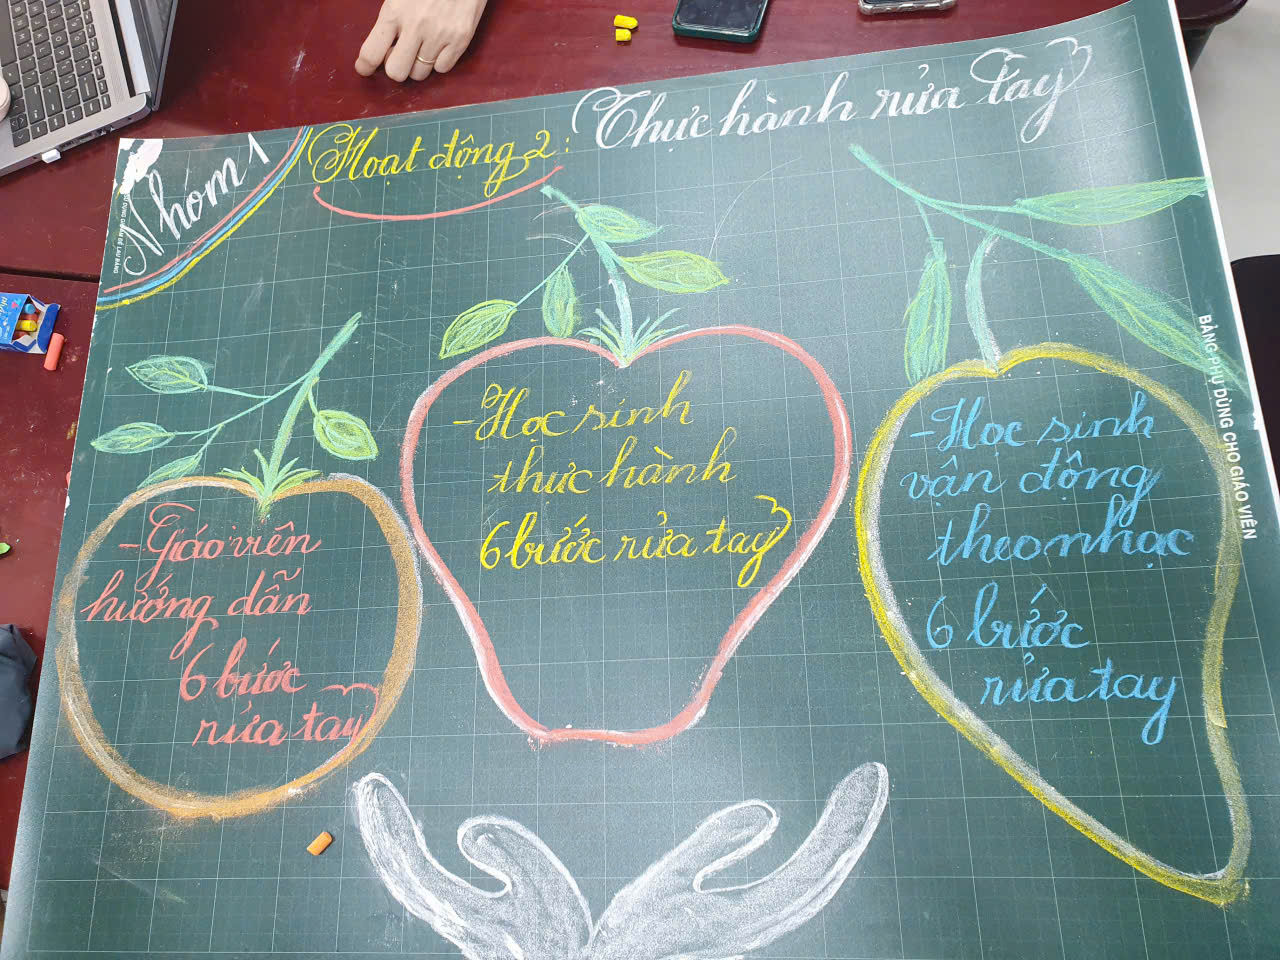 Nhóm 1
Hoạt động 2: Thực hành rửa tay
- Giáo viên
hướng dẫn
6 bước
rửa tay
- Học sinh
thực hành
6 bước rửa tay
- Học sinh
vận động
theo nhạc
6 bước
rửa tay
BẢNG PHỤ DÙNG CHO GIÁO VIÊN